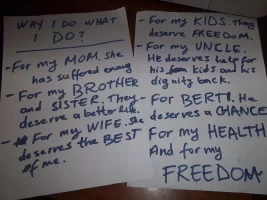 WHY I DO WHAT
I DO?
- For my MOM. She
has suffered enoug
- For my BROTHER
and SISTER. They
deserve a better life.
- For my WIFE. She
deserves the BEST
of me.
- For my KIDS. They
deserve FREEDOM.
- For my UNCLE.
He deserves help for
his kids and his
dignity back.
- For BERTI. He
deserves a CHANCE
For my HEALTH
And for my
FREEDOM